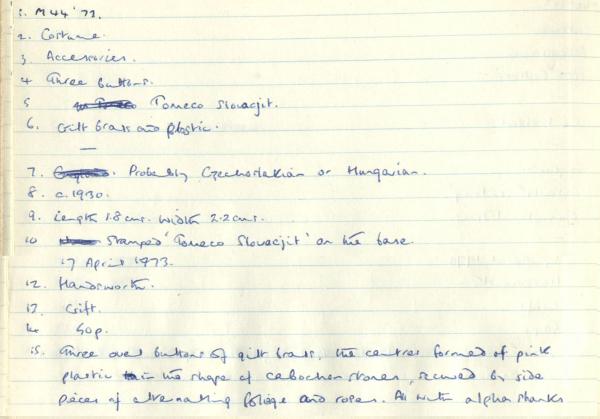 1. M44'73.
2. Costume.
3. Accessories.
4 Three buttons.
5 Tomeco Slovacjit.
6. Gilt brass and plastic.
—
7. Probably Czechoslakian or Hungarian.
8. c.1930.
9. Length 1.8 cms. Width 2.2 cms.
10 Stamped 'Tomeco Slovacjit' on the base.
17 April 1973.
12. Handsworth.
13. Gift.
14 50p.
15. Three oval buttons of gilt brass, the centres formed of pink
plastic in the shape of cabochon stones, secured by side
pieces of alternating foliage and roses. All with alpha shanks